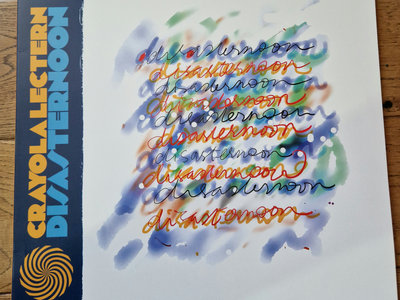 CRAYOLA LECTERN
DISASTERNOON
disasternoon
disasternoon
disasternoon
disasternoon
disasternoon
disasternoon
disasternoon
disasternoon
disasternoon
disasternoon